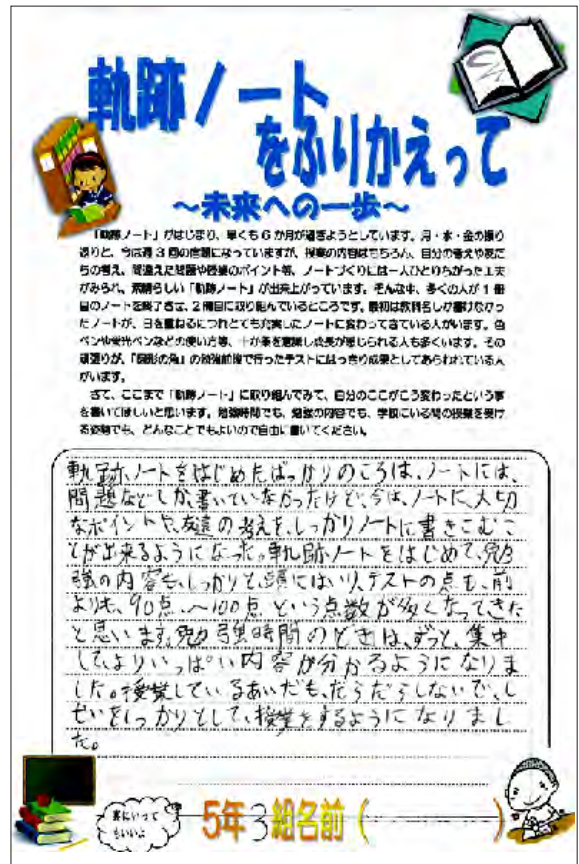 軌跡ノート
をふりかえって
～未来への一歩～
「軌跡ノート」がはじまり、早くも6か月が過ぎようとしています。月・水・金の振り
返りと、今は週3回の宿題になっていますが、授業の内容はもちろん、自分の考えや友だ
ちの考え、間違えた問題や授業のポイント等、ノートづくりには一人ひとりちがった工夫
がみられ、素晴らしい「軌跡ノート」が出来上がっています。そんな中、多くの人が1冊
目のノートを終了させ、2冊目に取り組んでいるところです。最初は教科名しか書けなかっ
たノートが、日を重ねるにつれとても充実したノートに変わってきている人がいます。色
ペンや蛍光ペンなどの使い方等、十か条を意識し成長が感じられる人も多くいます。その
頑張りが、「図形の角」の勉強前後で行ったテストにはっきり成果としてあらわれている人
がいます。
さて、ここまで「軌跡ノート」に取り組んでみて、自分のここがこう変わったという事
を書いてほしいと思います。勉強時間でも、勉強の内容でも、学校にいる間の授業を受け
る姿勢でも、どんなことでもよいので自由に書いてください。
軌跡ノートをはじめたばっかりのころは、ノートには、
問題などしか、書いていなかったけど、今は、ノートに、大切
なポイントや、友達の考えを、しっかりノートに書きこむこ
とが出来るようになった。軌跡ノートをはじめて、勉
強の内容も、しっかりと、頭にはいり、テストの点も、前
よりも、90点、～100点という点数が多くなってきた
と思います。勉強時間のときは、ずっと、集中
して、よりいっぱい内容が分かるようになりま
した。授業しているあいだも、だらだらしないで、し
せいをしっかりとして、授業をするようになりまし
た。
裏にいって
もいいよ
5年3組名前（ ）